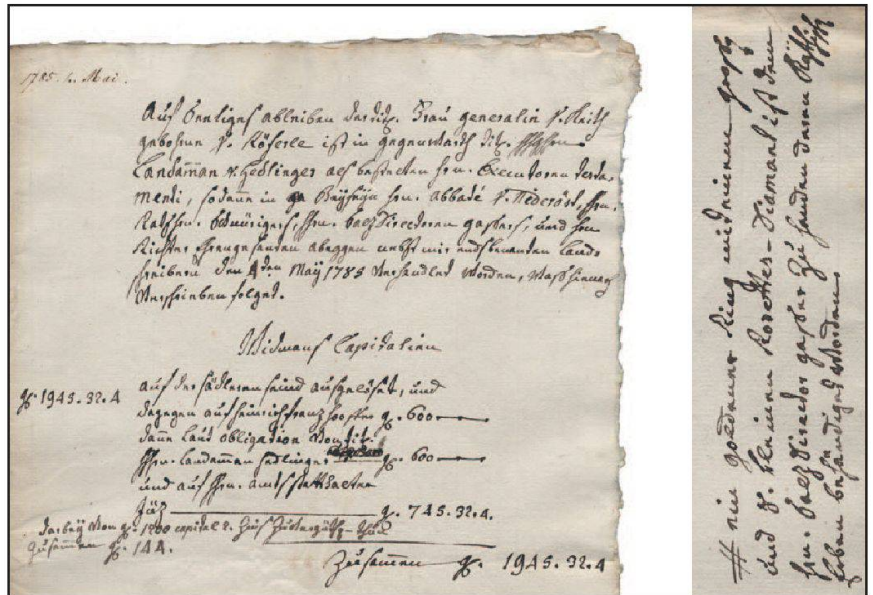 1785. 4. Mai.
Auf Seeliges ableiben der tit. Frau generalin V. Reith
gebohrne V. Köferle ist in gegenwarth tit.
Landaman V. Hedlinger als besteten hrn. Executoren testa-
menti, sodann in Beyseyn hrn. abbadé V. Nideröst, hrn.
Rathshrn. Schnürigers, hrn. Saeldirectoren gasser, und hrn
Richter abeggen nebst mir endsbenanten Land-
schreibern den 4ten May 1785 Verhandlet worden, wass hienach
Verschrieben folget.
Widmans Capitalien
gl. 1945. 32. 4
auf der sädleren seind aufgelöset, und
dagegen auf heinrich franz gl. 600
dann Laut obligation Von tit.
hrn. Landaman hedlinger gl. 600
und auf hrn. amtsstatthalter
Jüz gl. 745. 32. 4.
darbey Vom gl. 1200 capital 2. Zins
Zusammen gl. 144.
Zusammen gl. 1945. 32. 4
# ein goldener Ring mit einem gross
und 8. kleinen Rosettes-Diamant ist dem
hrn. Saeldirector gasser zu handen deren
behändiget worden